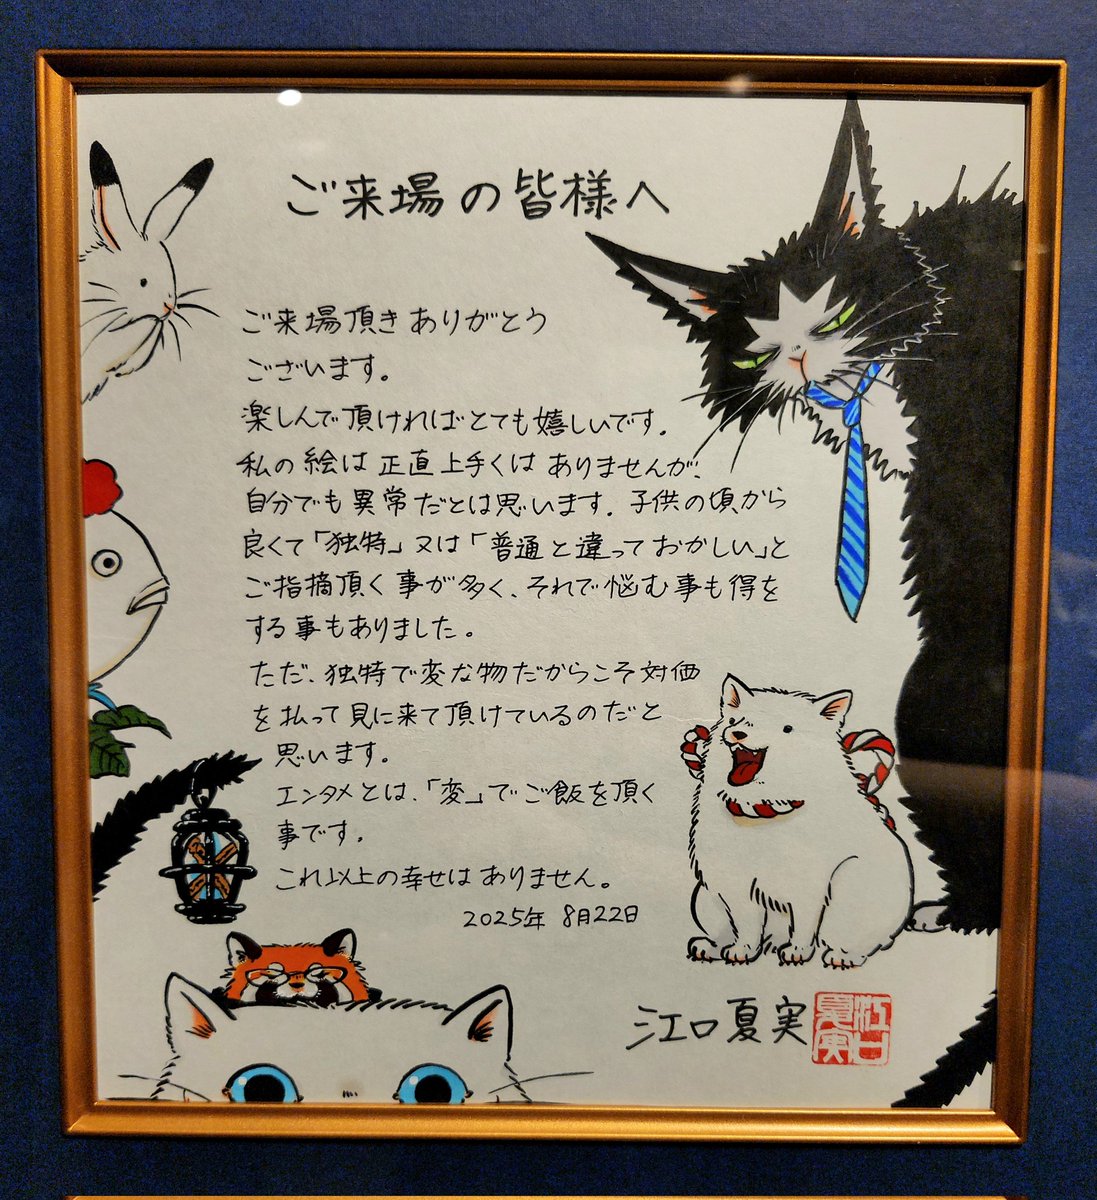 ご来場の皆様へ
ご来場頂きありがとう
ございます。
楽しんで頂ければとても嬉しいです。
私の絵は正直上手くはありませんが、
自分でも異常だとは思います。子供の頃から
良くて「独特」又は「普通と違っておかしい」と
ご指摘頂く事が多く、それで悩む事も得を
する事もありました。
ただ、独特で変な物だからこそ対価
を払って見に来て頂けているのだと
思います。
エンタメとは、「変」でご飯を頂く
事です。
これ以上の幸せはありません。
2025年 8月22日
江口夏実
江口
夏実